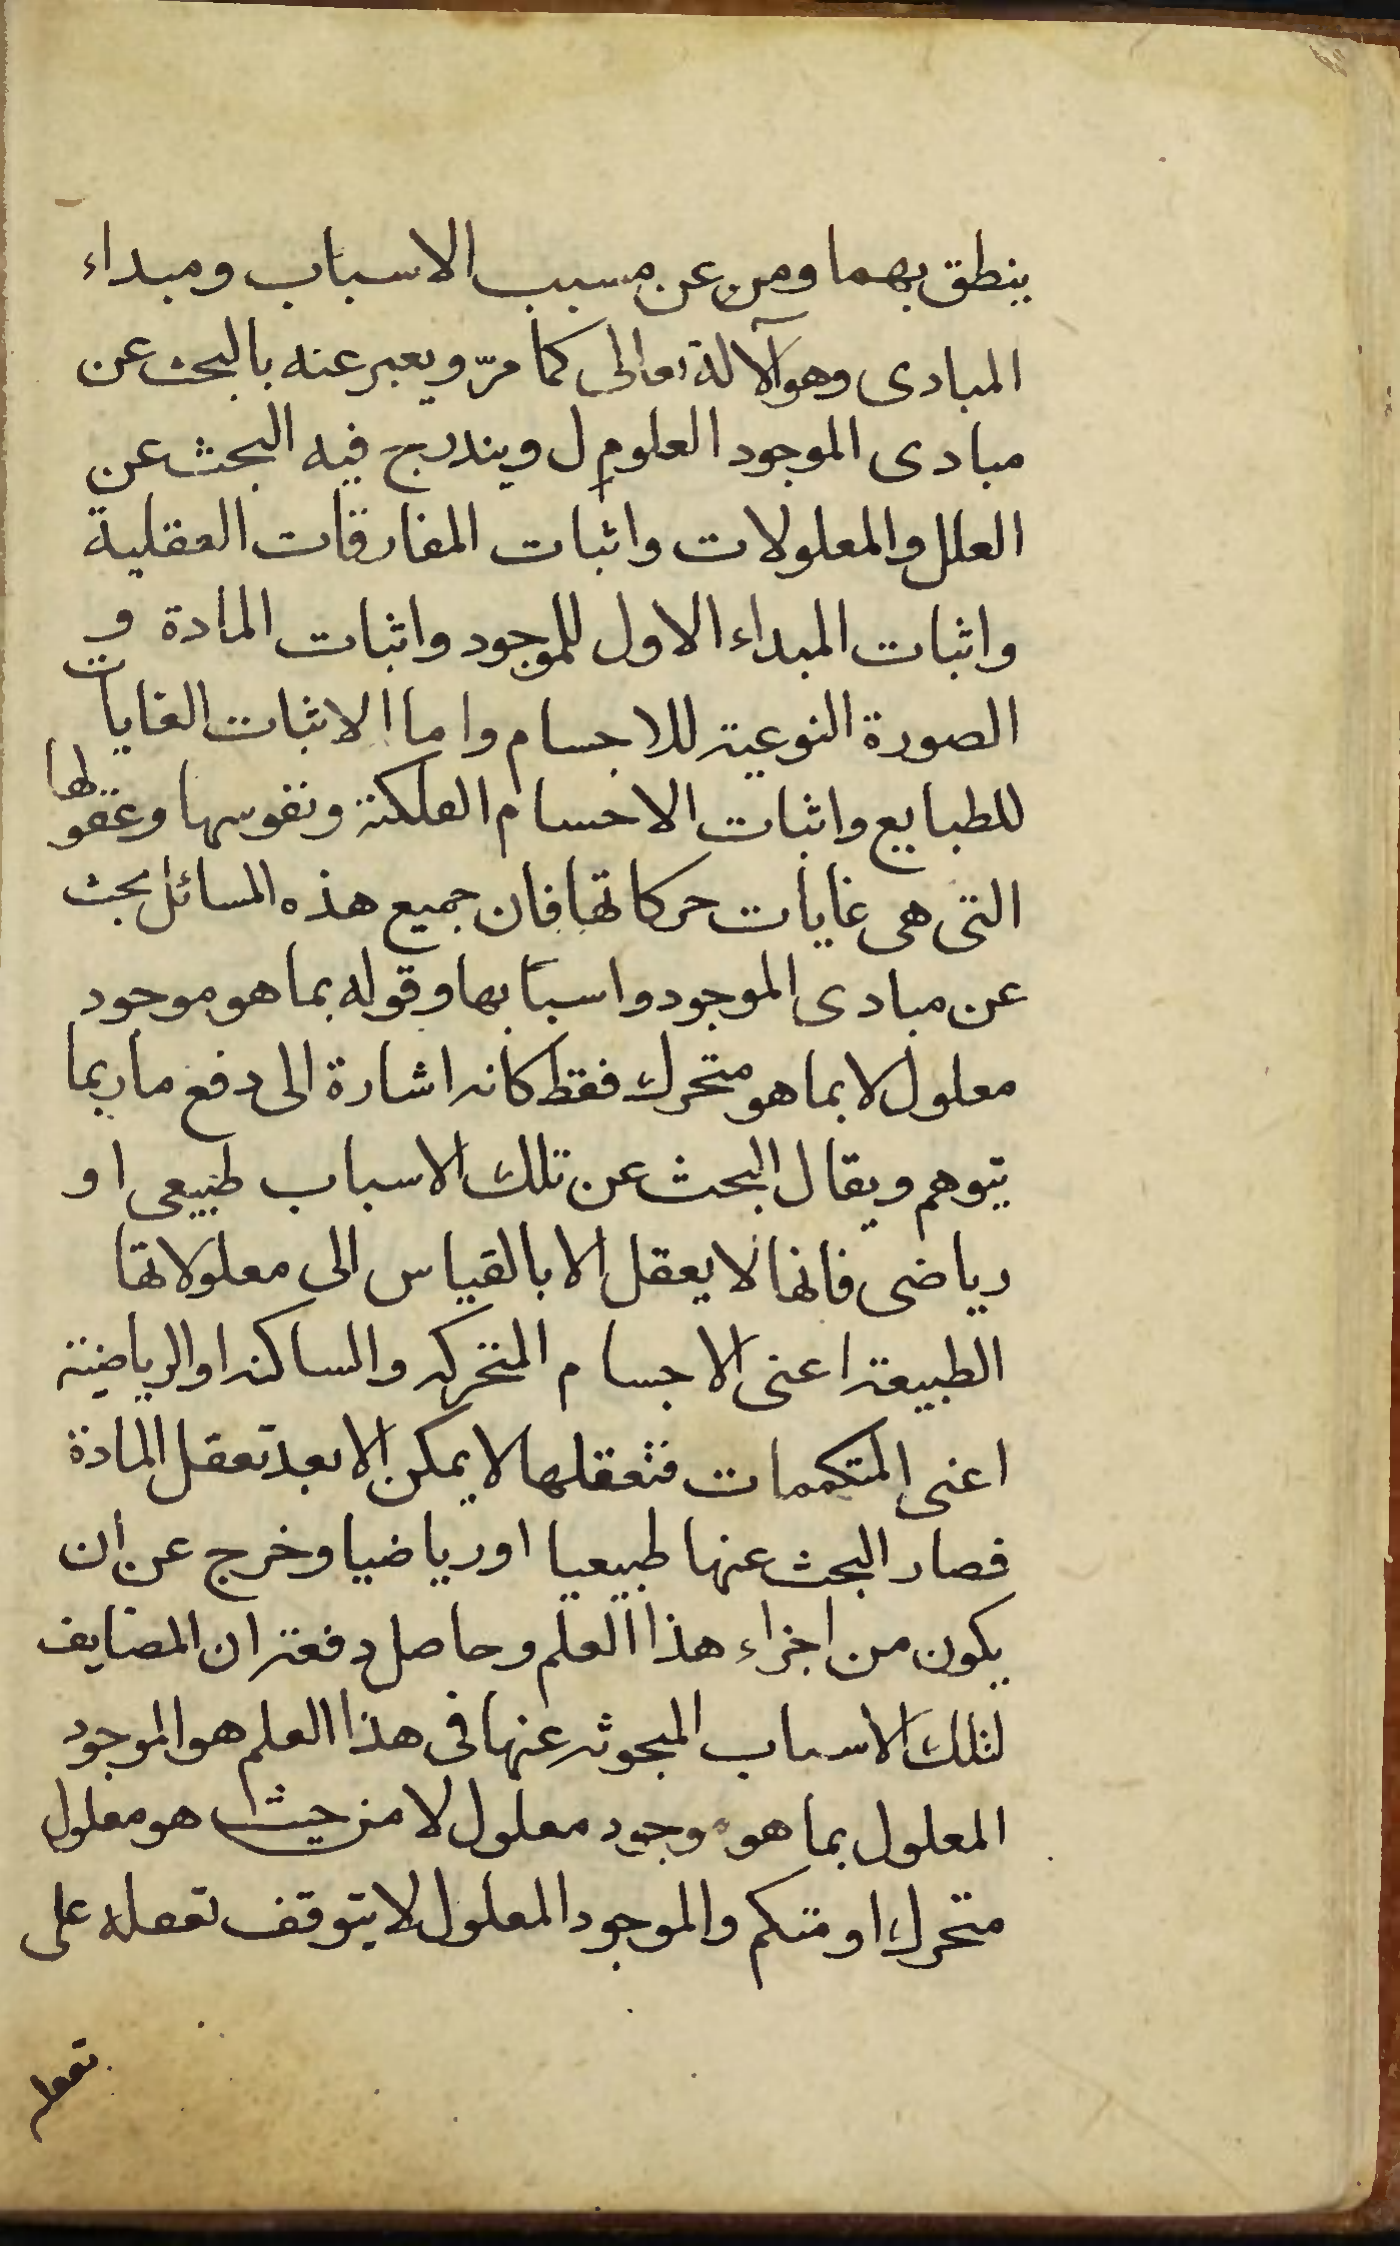 ينطق بهما ومن عن مسبب الاسباب ومبداء
المبادى وهو آلالة تعالى كما مرّ ويعبر عنه بالبحث عن
مبادى الموجود العلوم ل ويندرج فيه البحث عن
العلل والمعلولات واثبات المفارقات العقلية
واثبات المبداء الاول للموجود واثبات المادة و
الصورة النوعية للاجسام واما الاثبات الغايات
للطبايع واثبات الاجسام الفلكية ونفوسها وعقولها
التى هى غايات حركاتها فان جميع هذه المسائل بحث
عن مبادى الموجود واسبابها وقوله بما هو موجود
معلول لا بما هو متحرك فقط كانه اشارة الى دفع ما ربما
يتوهم ويقال البحث عن تلك الاسباب طبيعى او
رياضى فانها لا يعقل الا بالقياس الى معلولاتها
الطبيعة اعنى الاجسام المتحركه والساكنه او الرياضية
اعنى المتكممات فتعقلها لا يمكن الا بعد تعقل المادة
فصار البحث عنها طبيعيا او رياضيا وخرج عن ان
يكون من اجزاء هذا العلم وحاصل دفعه ان المضايف
لتلك الاسباب المبحوثه عنها فى هذا العلم هو الموجود
المعلول بما هو موجود معلول لا من حيث هو معلول
متحرك او متكم والموجود المعلول لا يتوقف تعقله على
تعقل